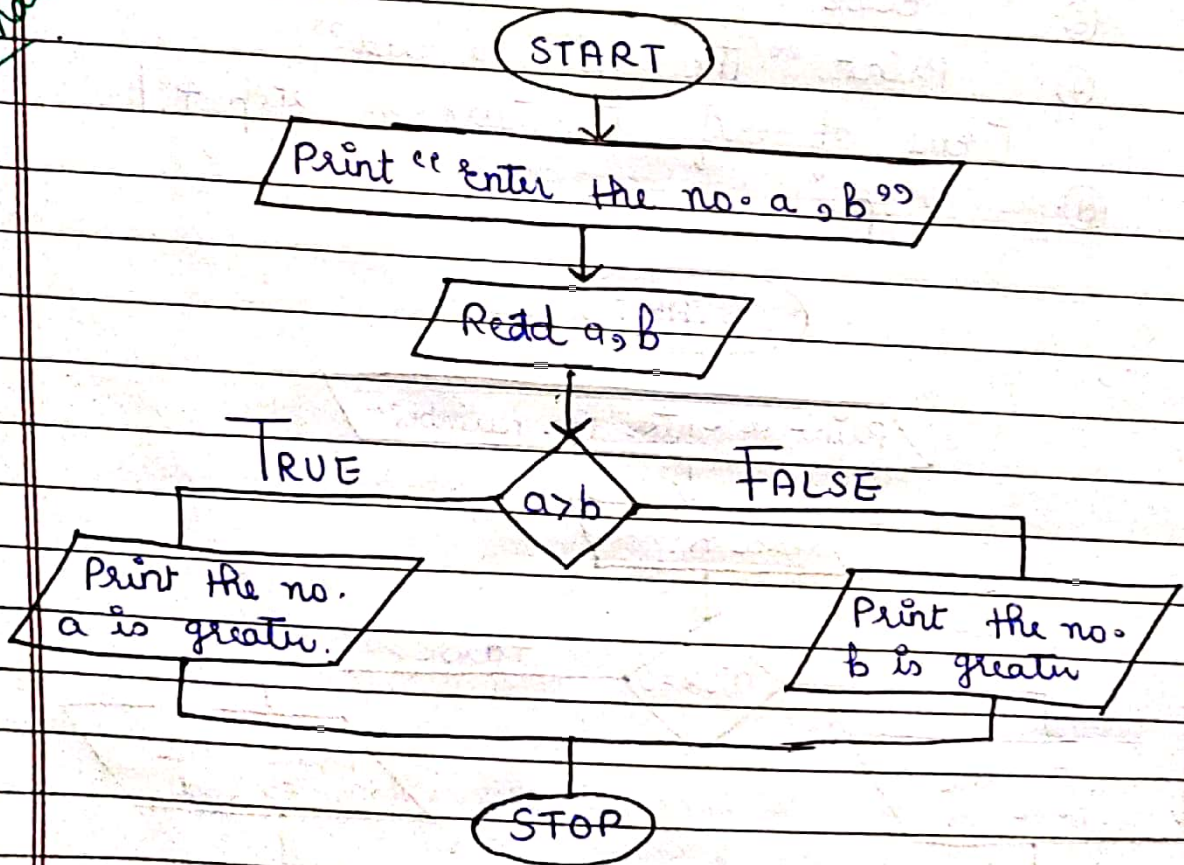 START
Print "Enter the no. a, b"
Read a, b
a>b
TRUE
FALSE
Print the no.
a is greater.
Print the no.
b is greater
STOP